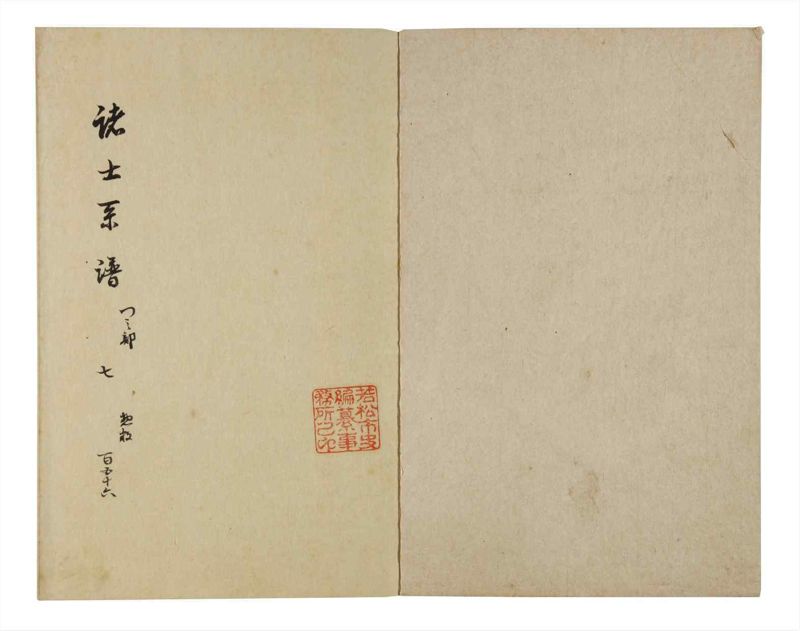 諸士系譜 つ之部 七 惣 百五十六
若松市史
編纂事
務所之印